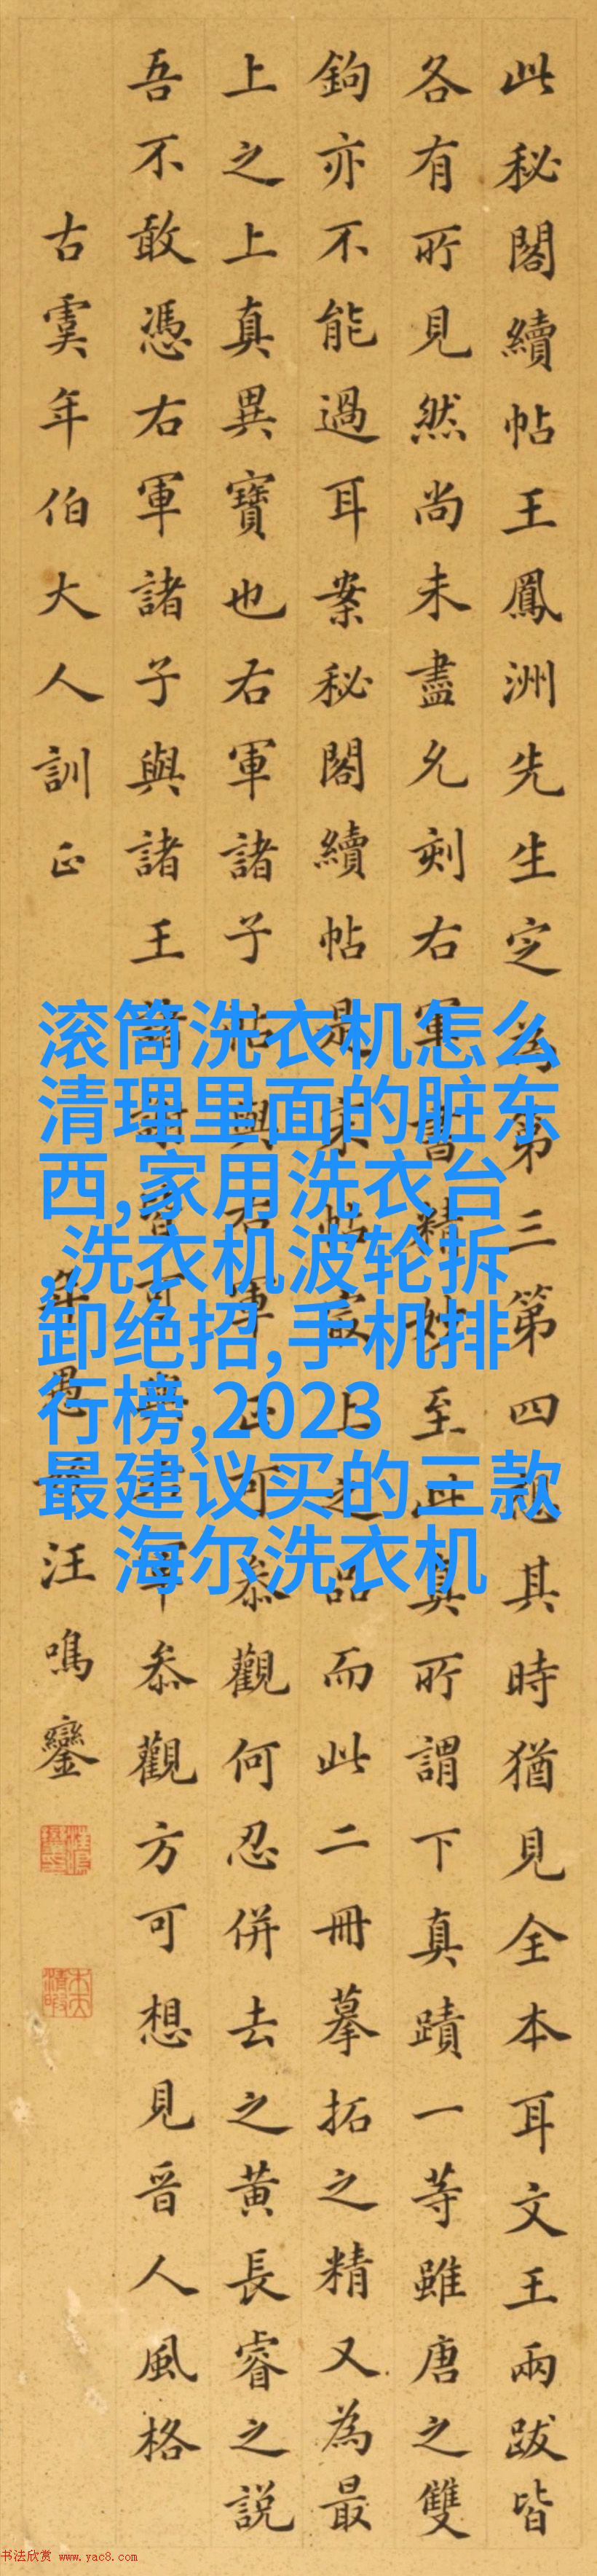 此秘閣續帖王鳳洲先生定為第三第四其時猶見全本耳文王兩跋皆
各有所見然尚未盡允刻右軍書精妙至此真所謂下真蹟一等雖唐之雙
鉤亦不能過耳案秘閣續帖是宋帖最上之品而此二冊摹拓之精又為最
上之上真異寶也右軍諸子帖與右軍正可叅觀何忍併去之黃長睿之說
吾不敢憑右軍諸子與諸王諸謝皆可與右軍叅觀方可想見晉人風格
古虞年伯大人訓正
年愚姪汪鳴鑾
滚筒洗衣机怎么
清理里面的脏东
西,家用洗衣台
,洗衣机波轮拆
卸绝招,手机排
行榜,2023
最建议买的三款
海尔洗衣机
书法欣赏 www.yac8.com